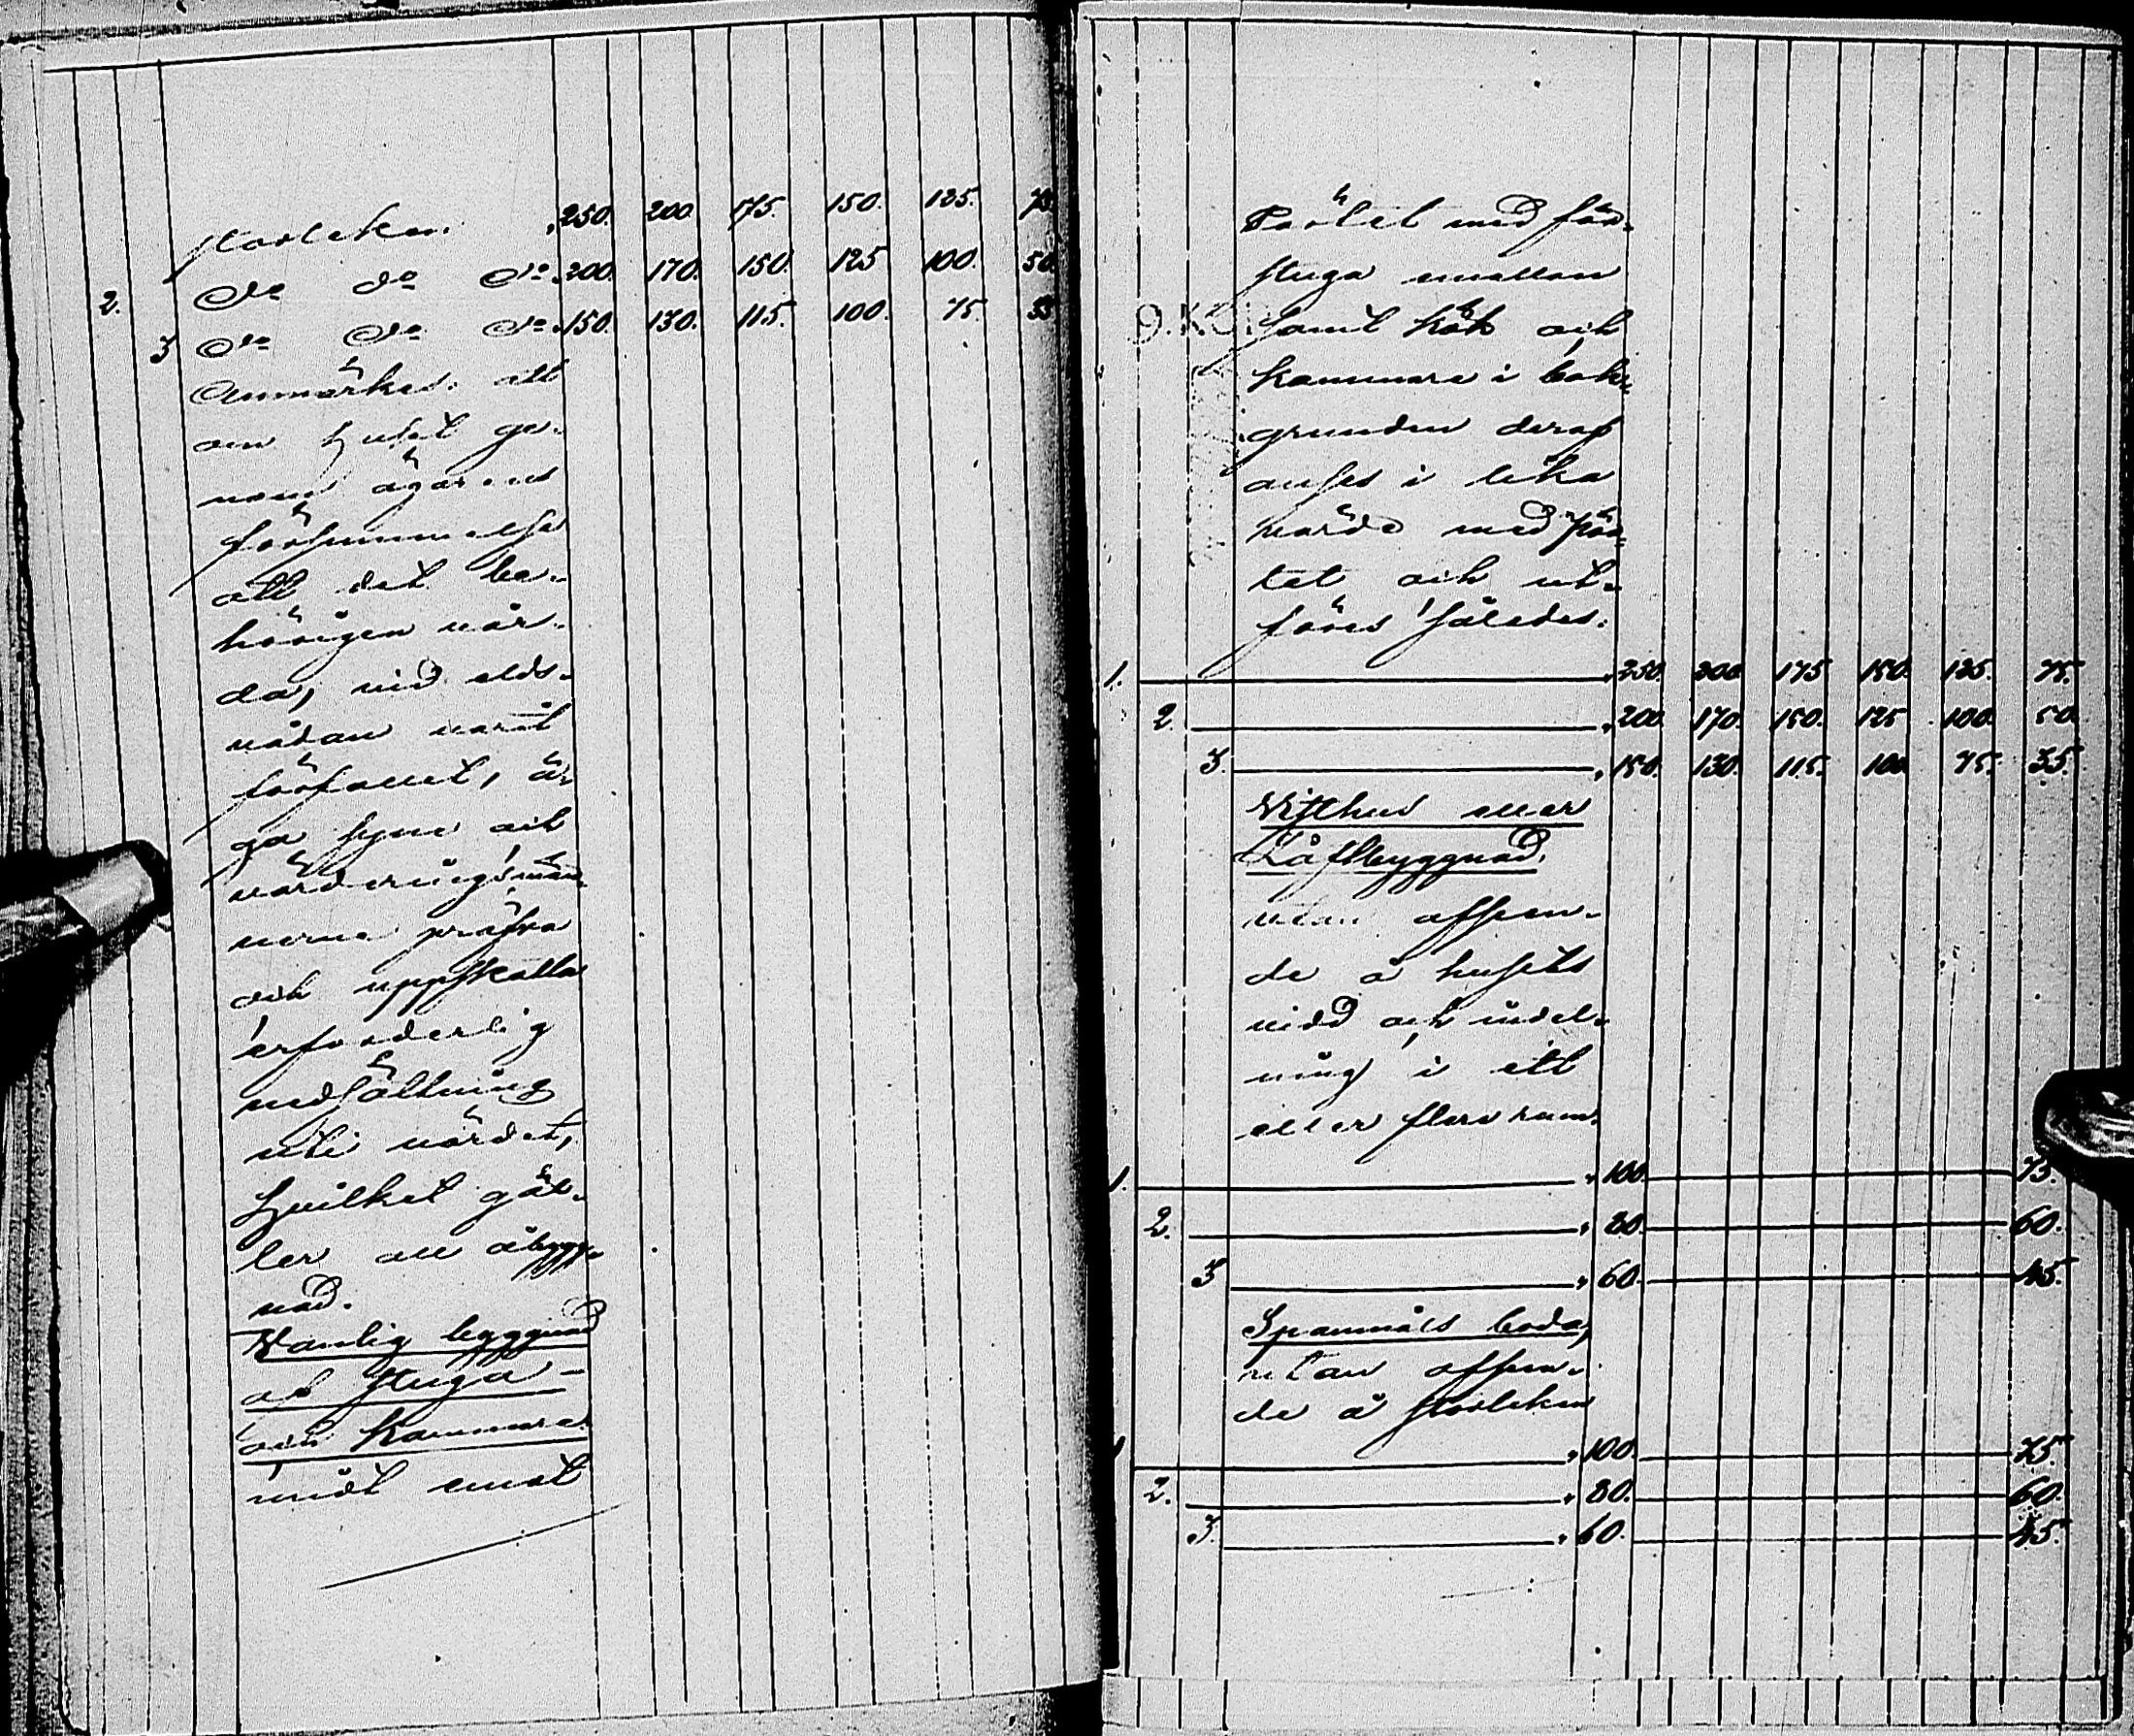 storleken. „ 250. 200. 175. 150. 125. 75.
2. do do do „ 200. 170. 150. 125 100. 50.
3 do do do „ 150. 130. 115. 100. 75. 35
Anmärkes. att
om huset ge-
nom ägarens
försummelse
att det be-
hörigen vår-
da, vid elds-
vådan varit
förfallet, ä-
ga syne och
värderingsmän-
nerna pröfva
och uppskatta
erforderlig
nedsättning
uti värdet,
hvilket gäl-
ler all åbygg-
nad.
Vanlig byggnad
af stuga -
och kammare
midt emot
Pörtet med för-
stuga emellan
samt kök och
kammare i bak-
grunden deraf
anses i lika
värde med pör-
tet och ut-
föres således:
1. „ 250. 200 175 150. 125. 75.
2. „ 200. 170. 150. 125 100. 50
3. „ 150. 130. 115. 100 75. 35.
Visthus eller
Låftbyggnad,
utan afseen-
de å husets
vidd och indel-
ning i ett
eller flera rum.
1. „ 100. 75.
2. „ 80. 60.
3 „ 60. 45.
Spanmåls boda,
utan afseen-
de å storleken
1 „ 100. 75.
2. „ 80. 60.
3. „ 60. 45.